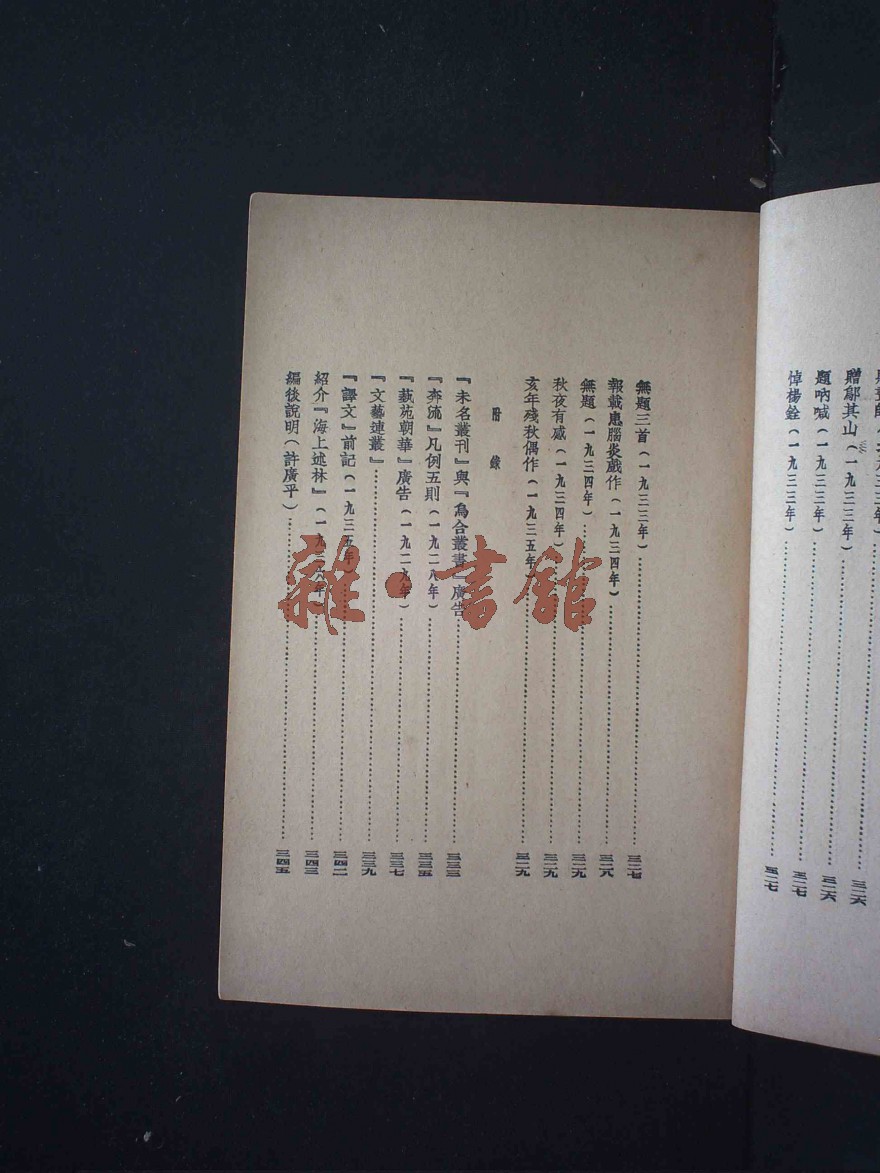 贈鄔其山(一九三三年)……三二六
題吶喊(一九三三年)……三二六
悼楊銓(一九三三年)……三二七
無題三首(一九三三年)……三二七
報載患腦炎戲作(一九三四年)……三二八
無題(一九三四年)……三二九
秋夜有感(一九三四年)……三二九
亥年殘秋偶作(一九三五年)……三二九
附錄
『未名叢刊』與『烏合叢書』廣告……三三三
『奔流』凡例五則(一九二八年)……三三五
『藝苑朝華』廣告(一九二九年)……三三七
『文藝連叢』……三三九
『譯文』前記(一九三五年)……三四二
紹介『海上述林』(一九三六年)……三四三
編後說明(許廣平)……三四五
雜·書館